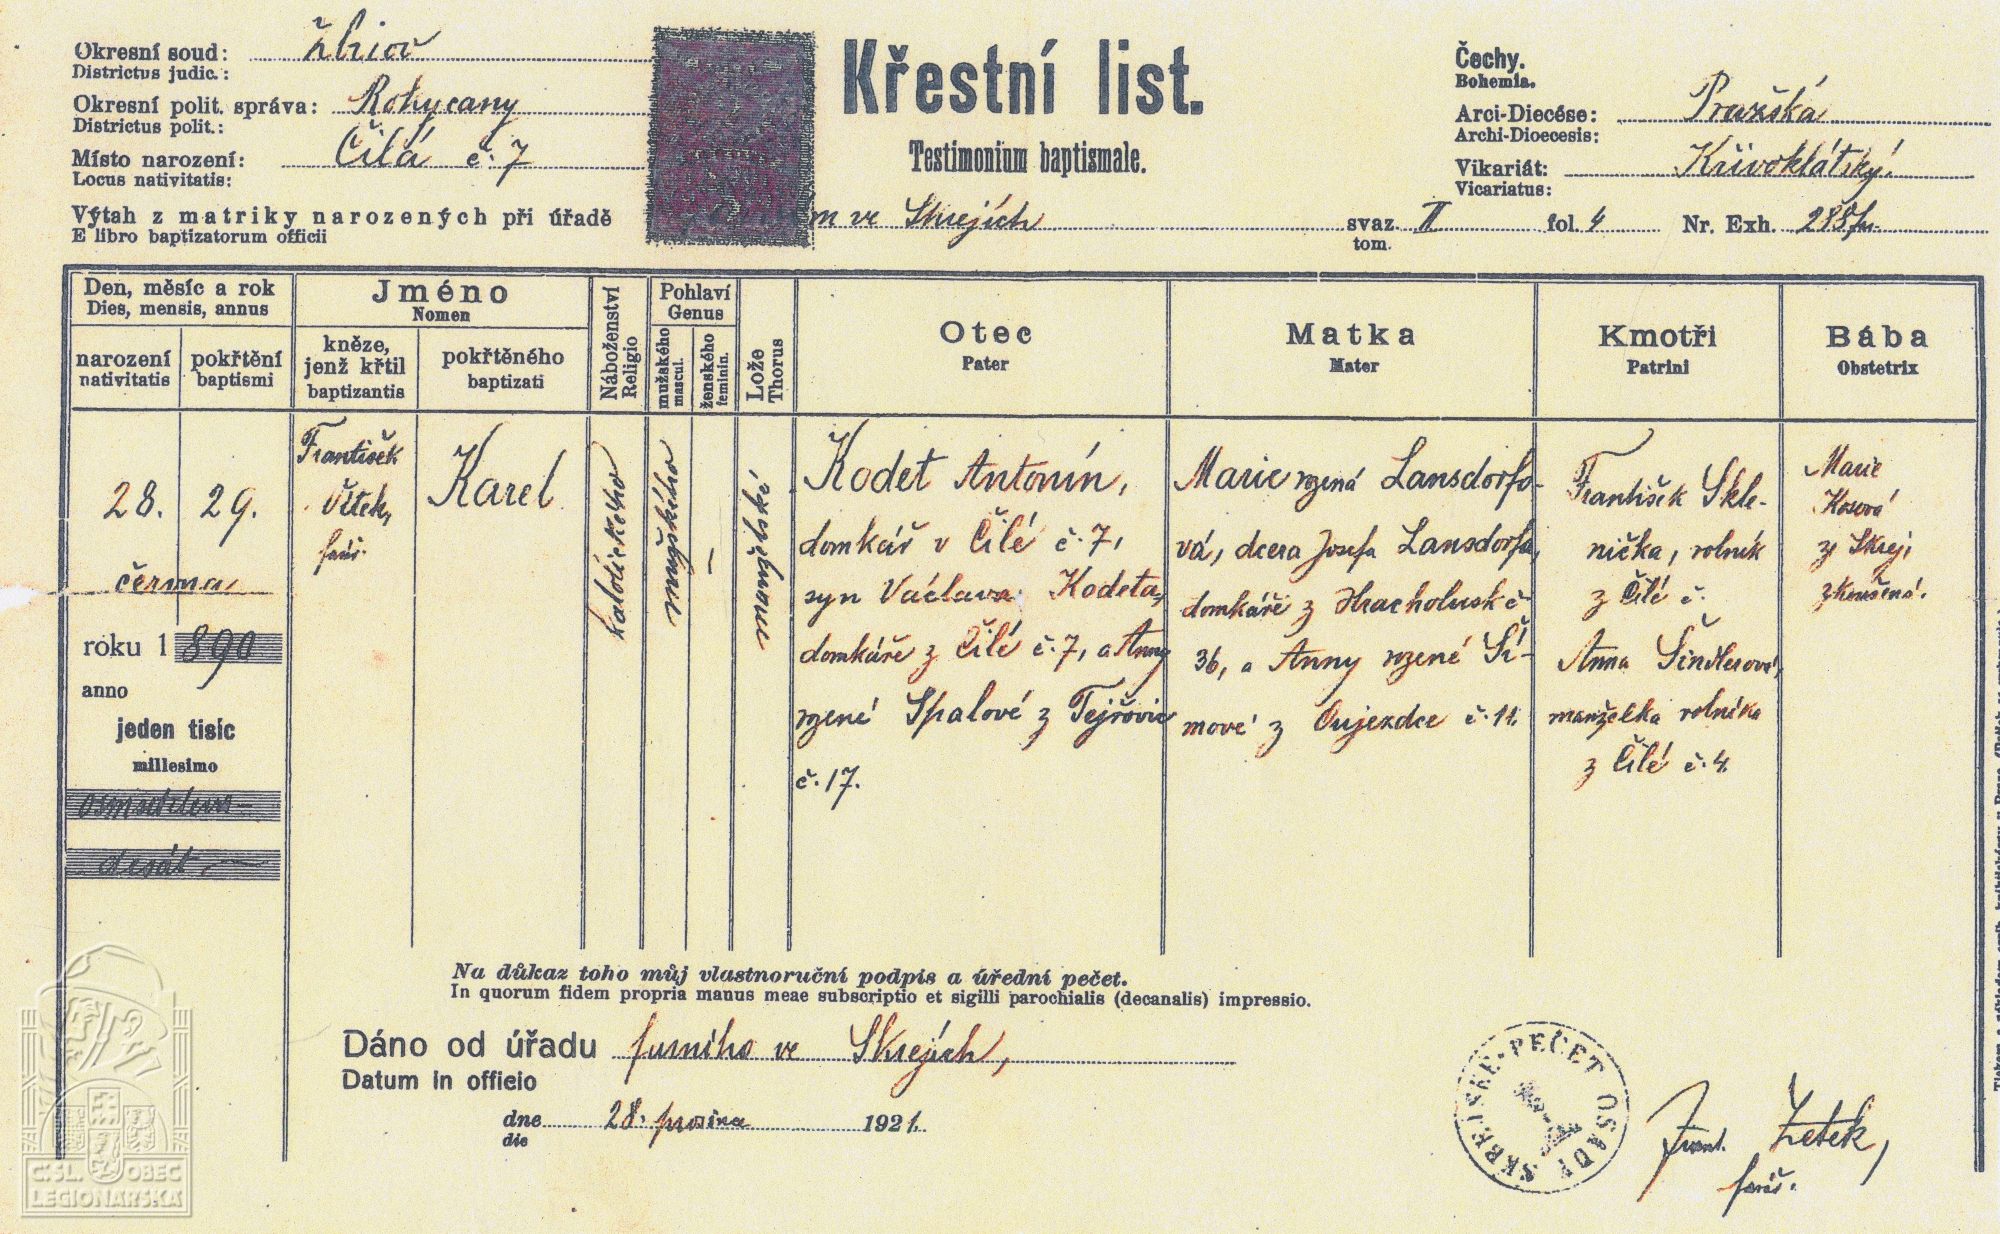 Okresní soud: Zbiroh
Districtus judic.:
Okresní polit. správa: Rokycany
Districtus polit.:
Místo narození: Čilá č. 7
Locus nativitatis:
Výtah z matriky narozených při úřadě ve Skrejích svaz II fol. 4 Nr. Exh.
E libro baptizatorum officii tom.
Křestní list.
Testimonium baptismale.
Čechy.
Bohemia.
Arci-Diecése: Pražská
Archi-Dioecesis:
Vikariát: Křivoklátský.
Vicariatus:
Den, měsíc a rok
Dies, mensis, annus
narození
nativitatis
pokřtění
baptismi
Jméno
Nomen
kněze,
jenž křtil
baptizantis
pokřtěného
baptizati
Náboženství
Religio
Pohlaví
Genus
mužského
mascul.
ženského
feminin.
Lože
Thorus
Otec
Pater
Matka
Mater
Kmotři
Patrini
Bába
Obstetrix
28. 29.
června
roku 1890
anno
jeden tisíc
millesimo
osmsetdeva-
desát.—
František
Vítek,
farář.
Karel
katolického
mužského
—
manželské
Kodet Antonín,
domkář v Čilé č. 7,
syn Václava Kodeta,
domkáře z Čilé č. 7, a Anny
rozené Spalové z Tejřovic
č. 17.
Marie rozená Lansdorfo-
vá, dcera Josefa Lansdorfa,
domkáře z Hracholusk č
36, a Anny rozené Ší-
mové z Oujezdce č. 11.
František Skle-
nička, rolník
z Čilé č.
Anna Šindlerová,
manželka rolníka
z Čilé č. 4.
Marie
Kosová
z Skrej,
zkoušená.
Na důkaz toho můj vlastnoruční podpis a úřední pečet.
In quorum fidem propria manus meae subscriptio et sigilli parochialis (decanalis) impressio.
Dáno od úřadu farního ve Skrejích,
Datum in officio
dne 28. prosince 1921.
die
PEČET OSADY SKREJSKÉ
Frant. Zetek,
farář.
Č.SL. OBEC
LEGIONÁŘSKÁ